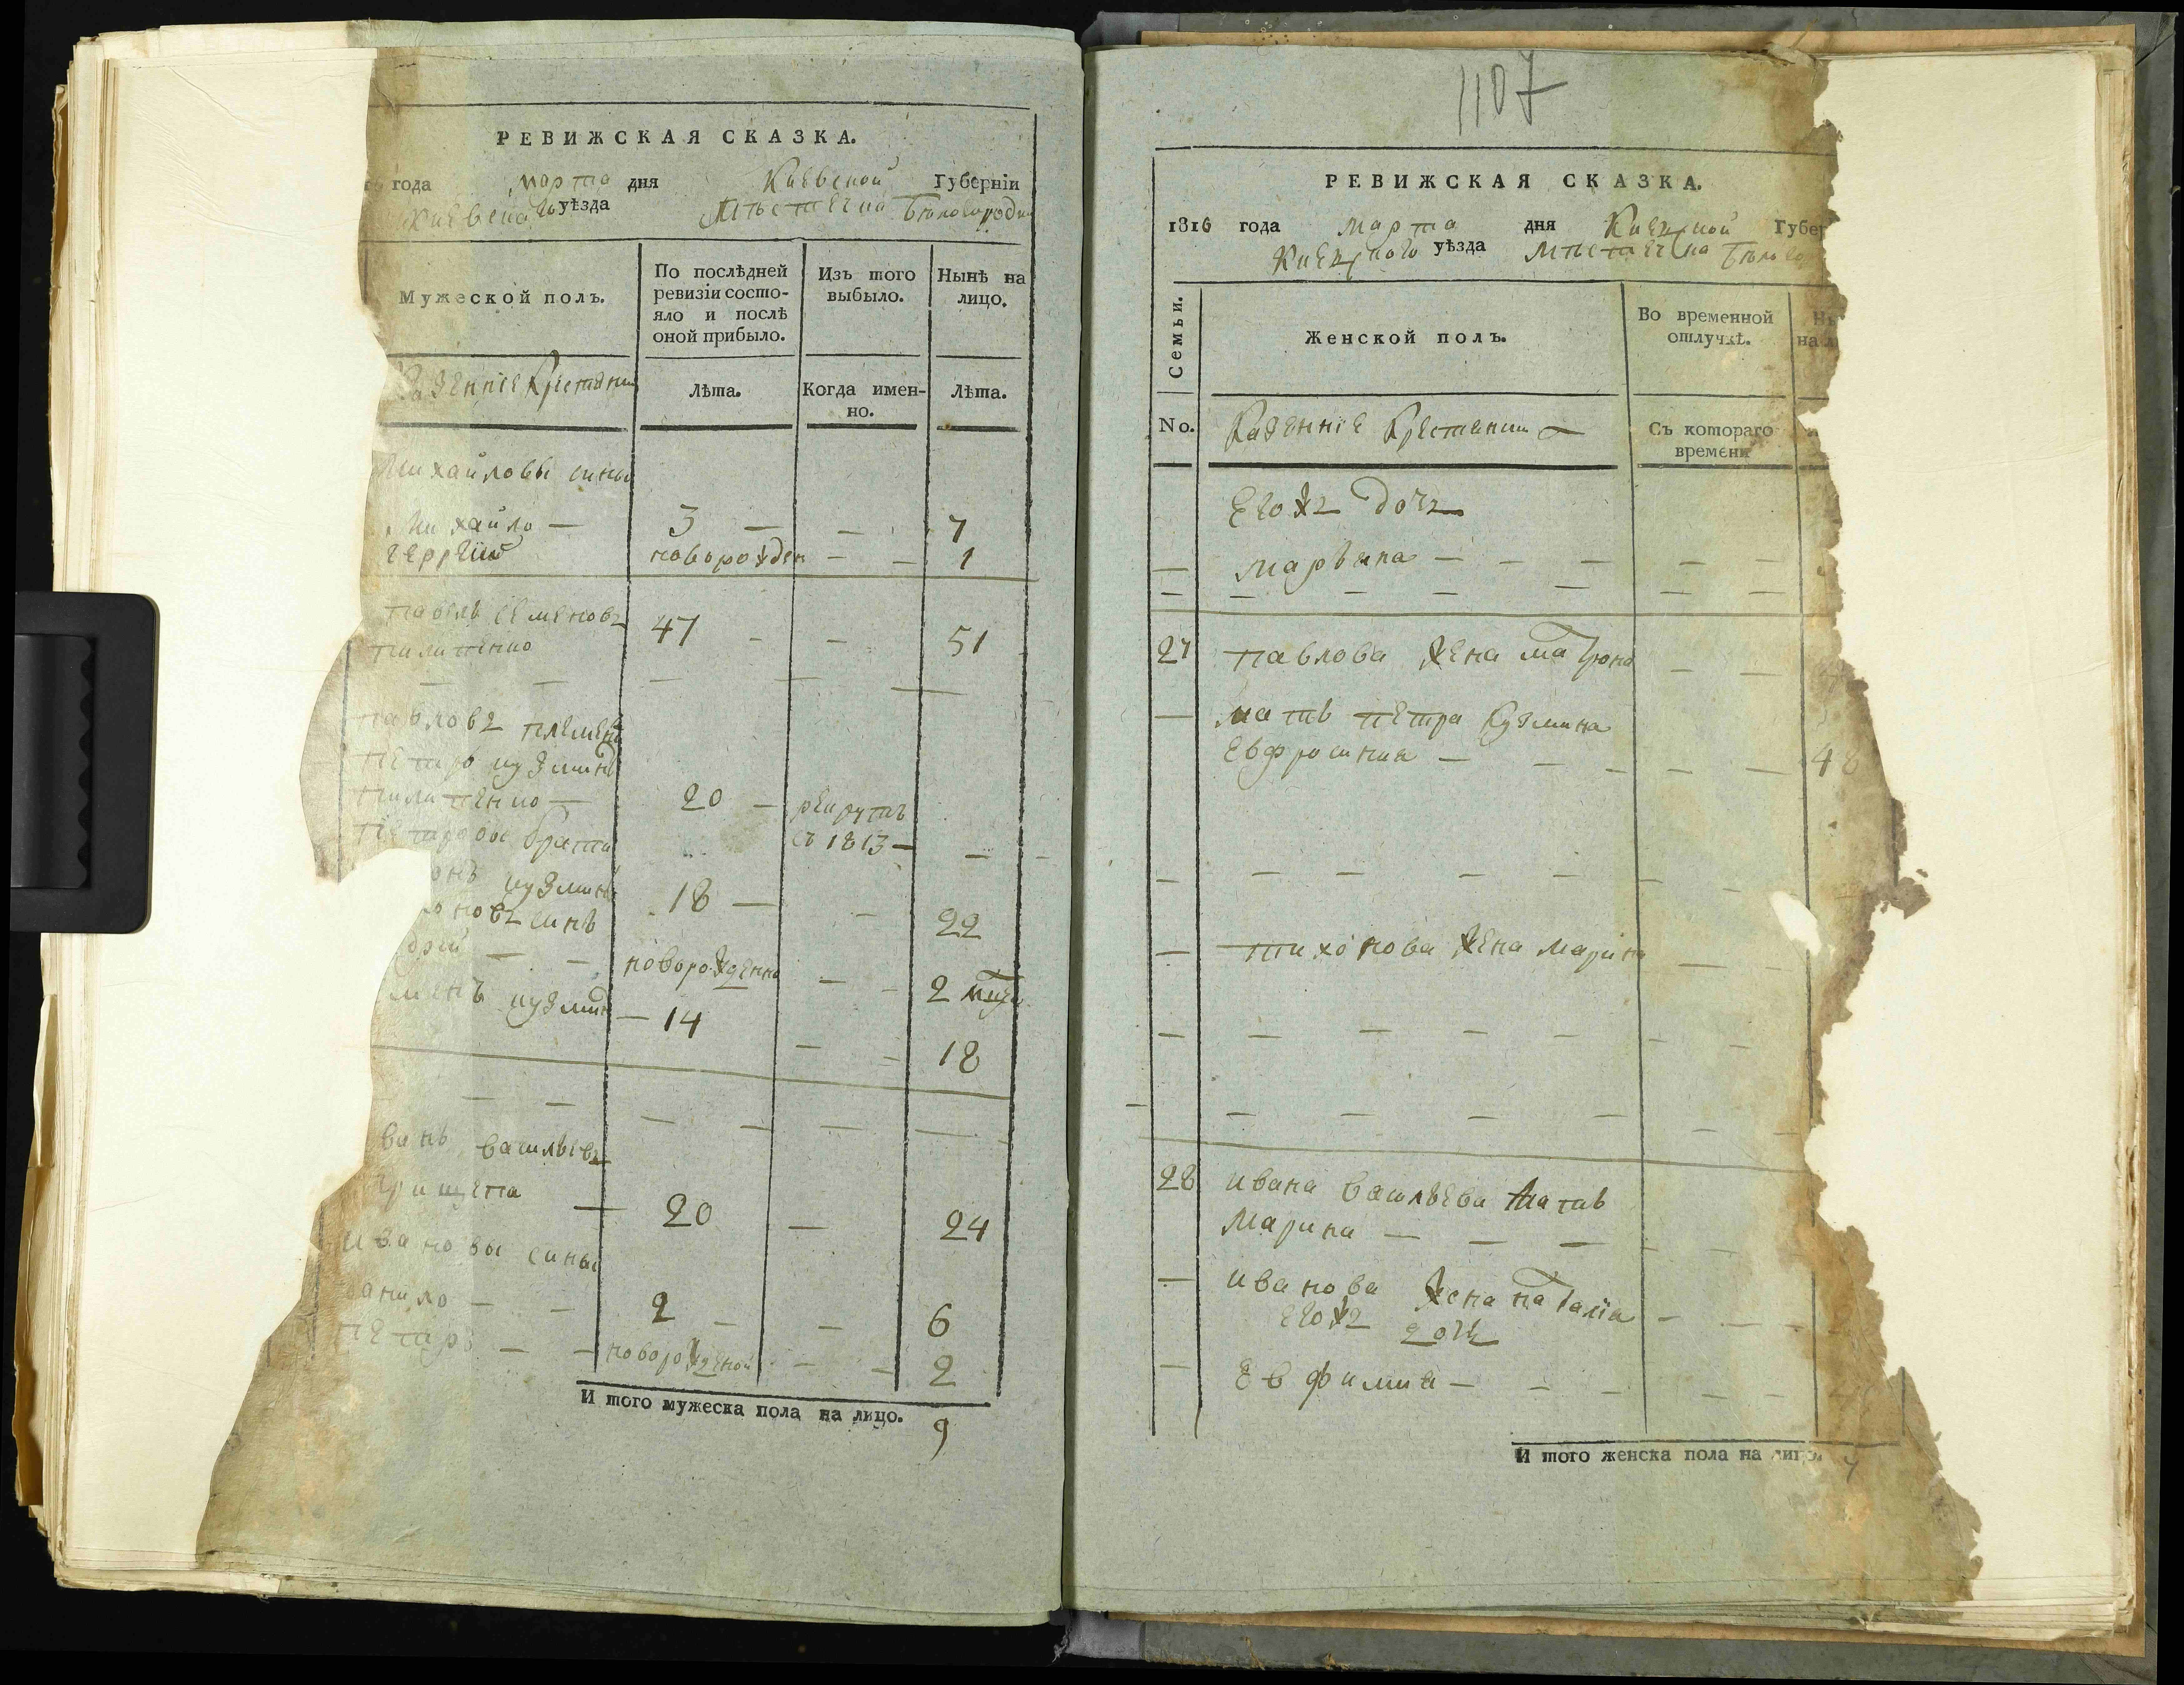 РЕВИЖСКАЯ СКАЗКА.
года марта дня Киевской Губерніи
Киевского уѣзда Мѣстечка Бѣлогородки
Мужеской полъ.
По послѣдней ревизіи состояло и послѣ оной прибыло.
Изъ того выбыло.
Нынѣ на лицо.
Казенніе Крестянии
Лѣта.
Когда именно.
Лѣта.
Михайловы сины
Михайло — 3 — — 7
Сергѣй новорожден — — 1
Павелъ Семеновъ
Пилипенко 47 — — 51
Павловъ племен
Петро кузминъ
Пилипенко — 20 — рекрутъ
съ 1813 —
Петровы брати
онъ кузминъ 18 — — 22
оновъ синъ
дрій — — новорожденно — — 2
менъ кузмин — 14 — — 18
ванъ васильевъ
Грищепа — 20 — 24
Ивановы сины
Данило — — 2 — — 6
Петръ — — новорожденой — — 2
И того мужеска пола на лицо. 9
1107
РЕВИЖСКАЯ СКАЗКА.
1816 года марта дня Киевской Губер
Киевского уѣзда Мѣстечка Бѣлогор
Семьи.
Женской полъ.
Во временной отлучкѣ.
Ны
на л
No.
Казенніе Крестянии
Съ котораго времени
Егожъ дочъ
— Марьяна — — — — —
27 Павлова жена Матрона — —
— мать Петра Кузмина
Евфросиния — — — — — 48
— Тихонова жена Марина — —
28 Ивана васильева мать
Марина — — — — —
— Иванова жена Наталия — — —
Егожъ дочъ
— Евфимия — — — — —
И того женска пола на лицо. 7